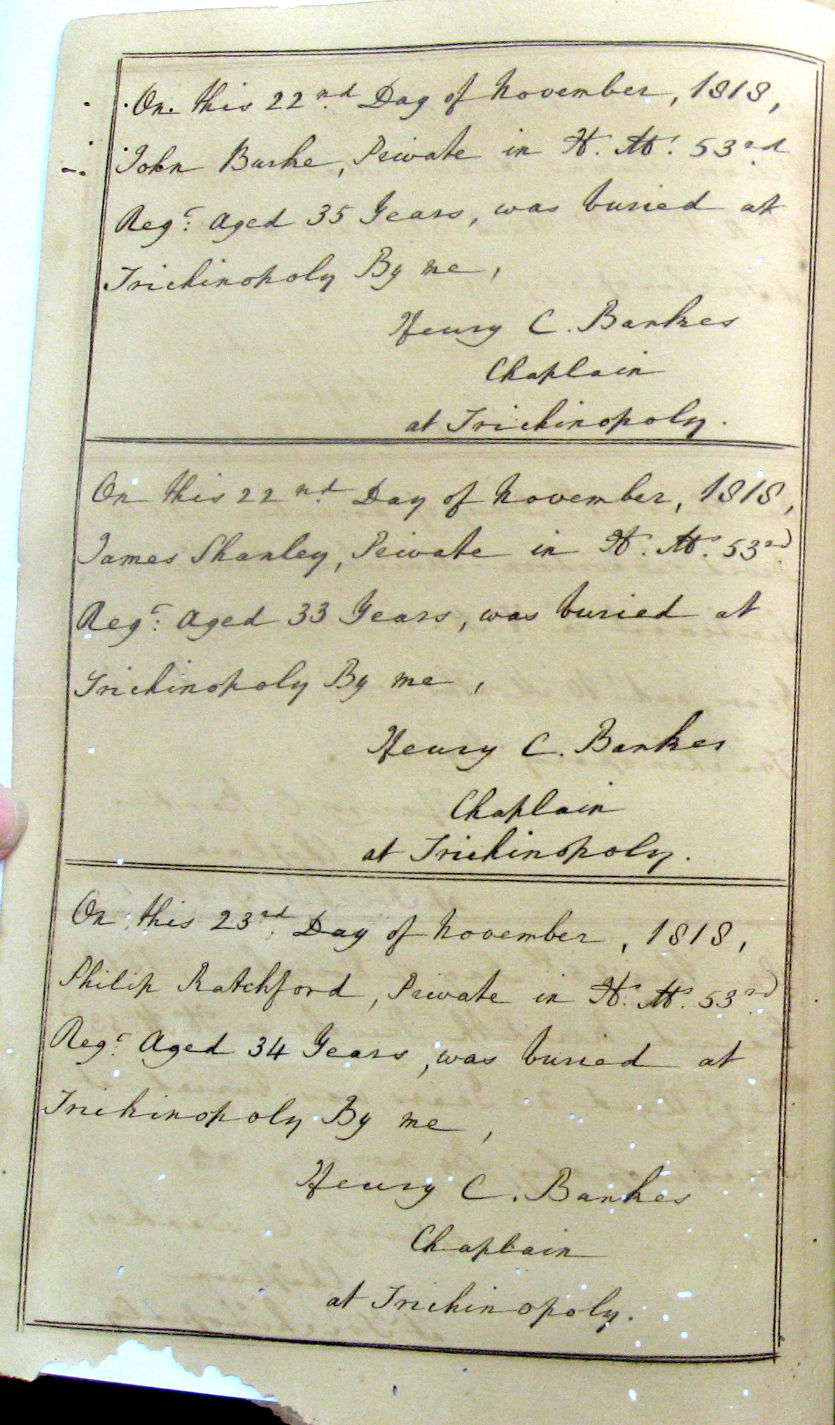 On this 22nd Day of November, 1818,
John Burke, Private in H. M. 53rd
Regt: Aged 35 Years, was buried at
Trichinopoly By me,
Henry C. Bankes
Chaplain
at Trichinopoly.
On this 22nd Day of November, 1818,
James Shanley, Private in H. M. 53rd
Regt: Aged 33 Years, was buried at
Trichinopoly By me,
Henry C. Bankes
Chaplain
at Trichinopoly.
On this 23rd Day of November, 1818,
Philip Ratchford, Private in H. M. 53rd
Regt Aged 34 Years, was buried at
Trichinopoly By me,
Henry C. Bankes
Chaplain
at Trichinopoly.